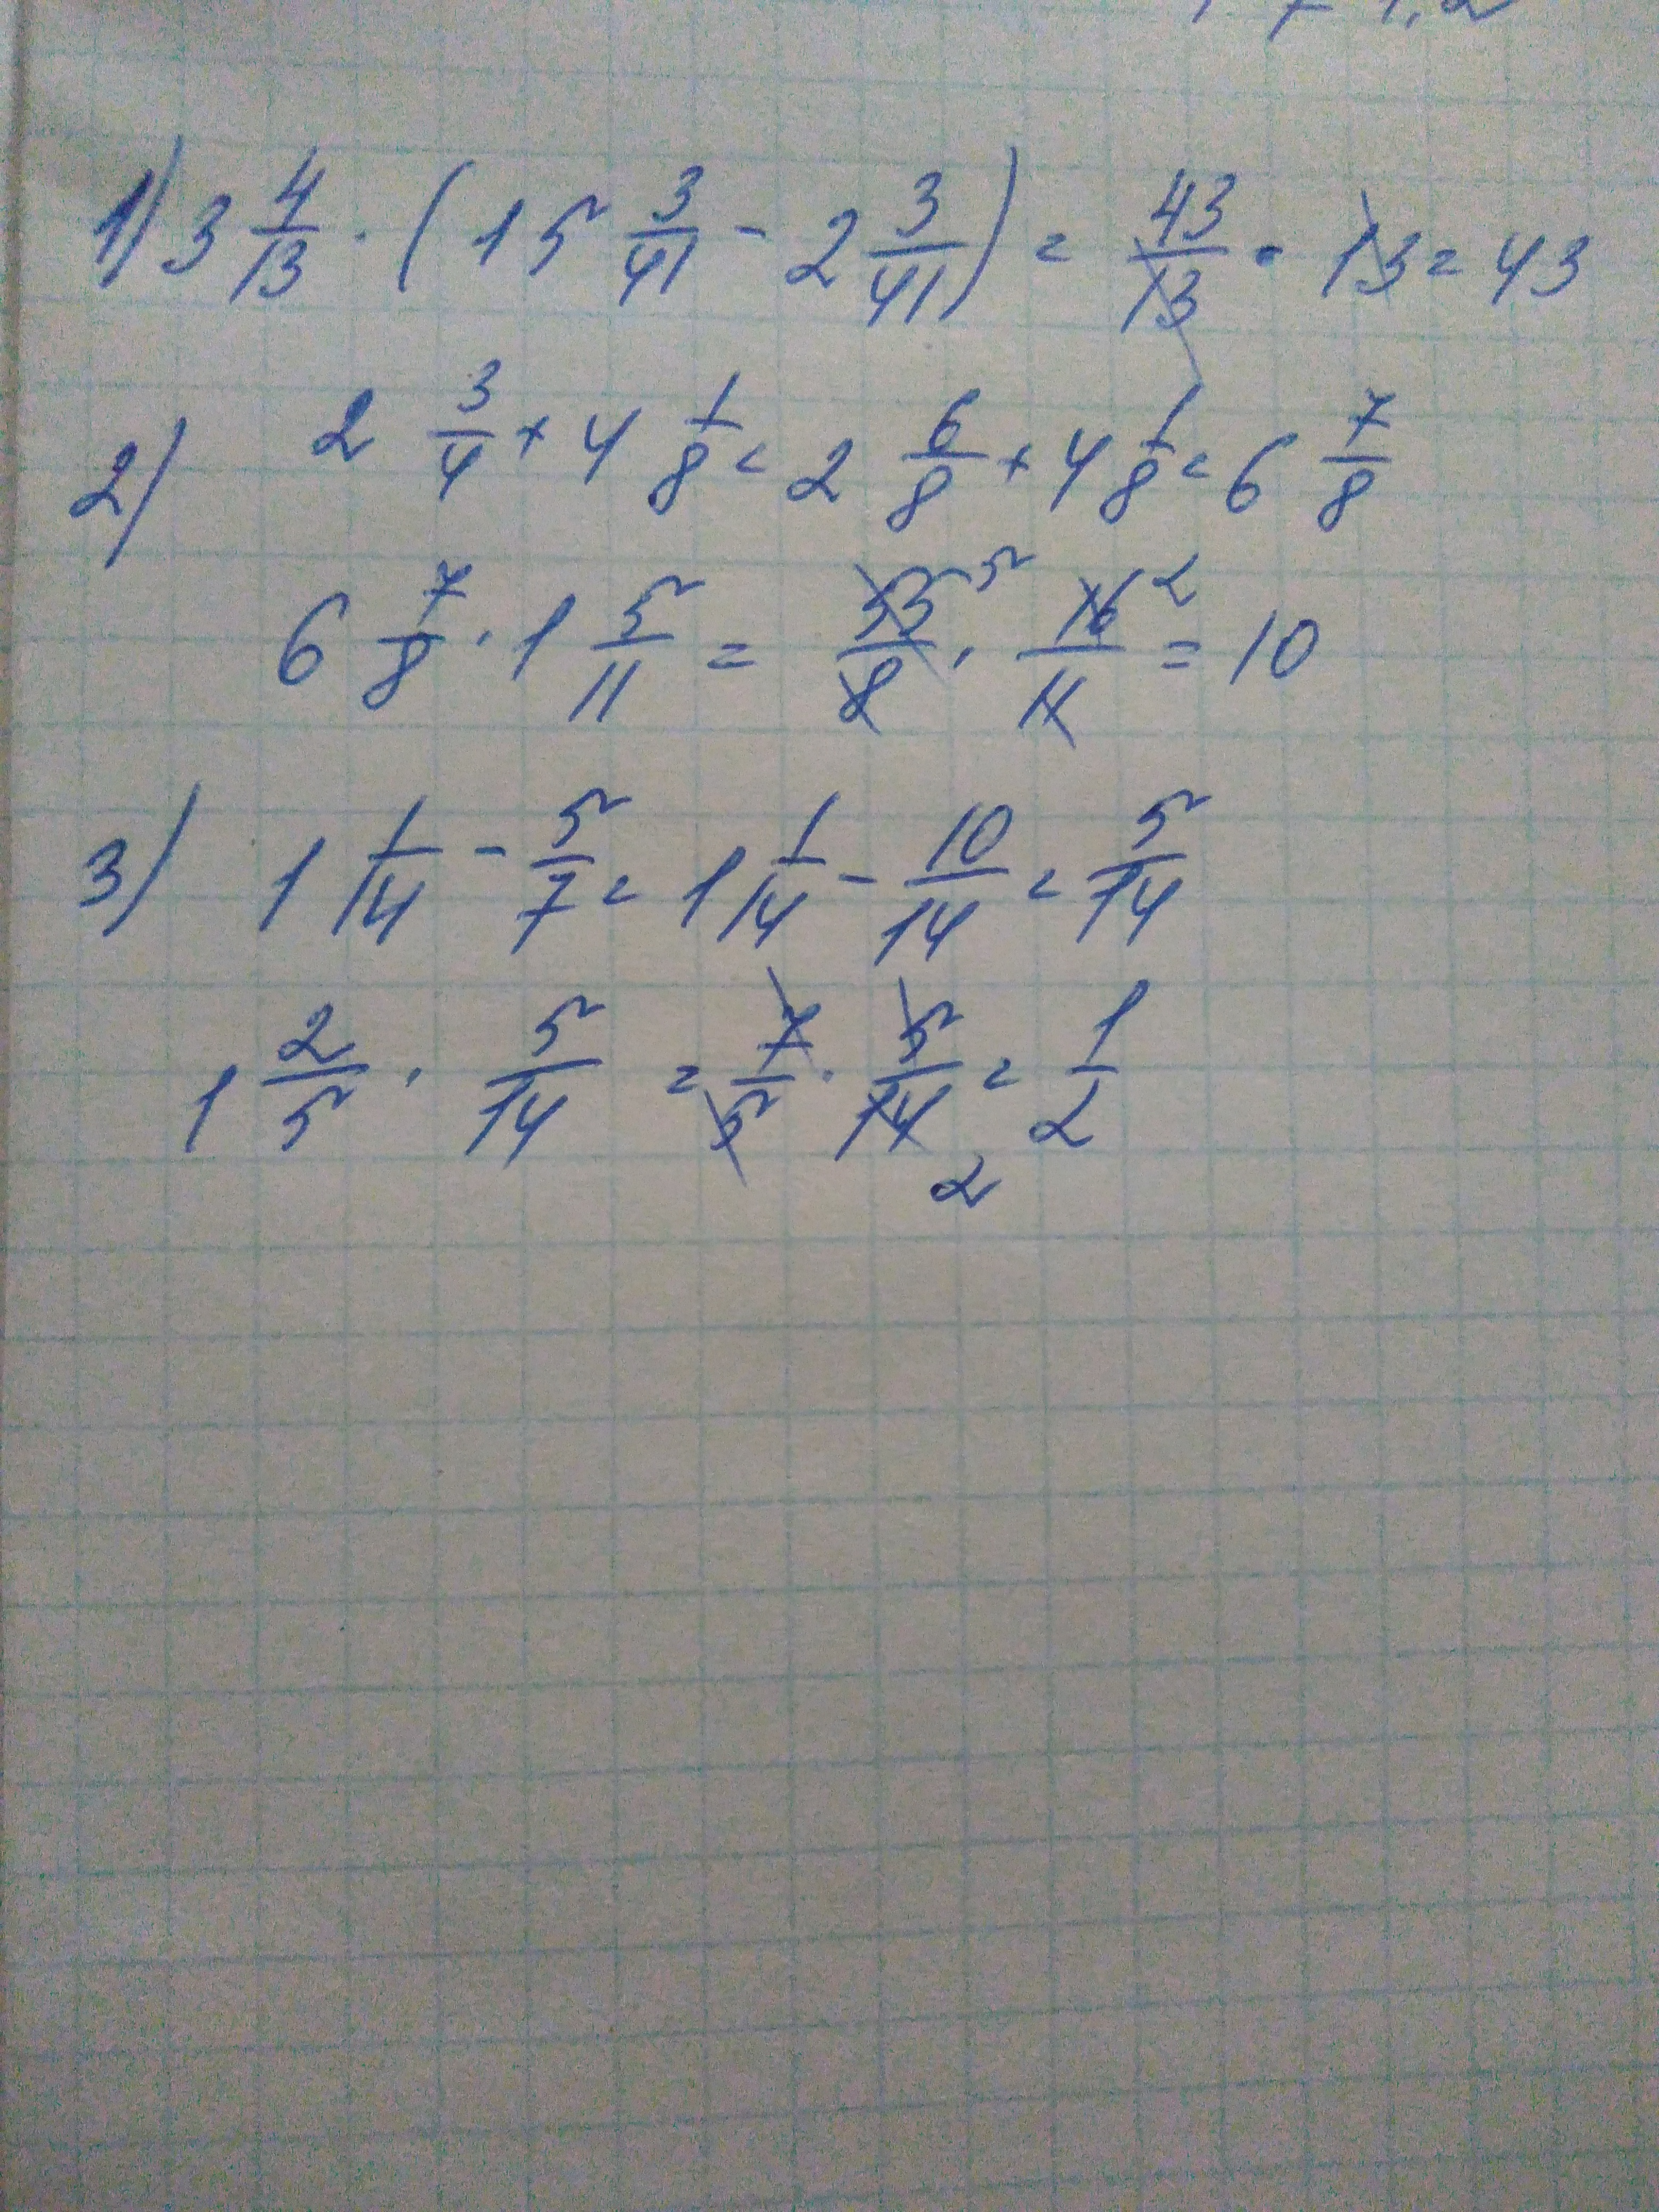 1) 3 4/13 · (15 3/41 - 2 3/41) = 43/13 · 13 = 43
2) 2 3/4 + 4 1/8 = 2 6/8 + 4 1/8 = 6 7/8
6 7/8 · 1 5/11 = 55/8 5 · 16/11 2 = 10
3) 1 1/14 - 5/7 = 1 1/14 - 10/14 = 5/14
1 2/5 · 5/14 = 7/5 · 5/14 2 = 1/2